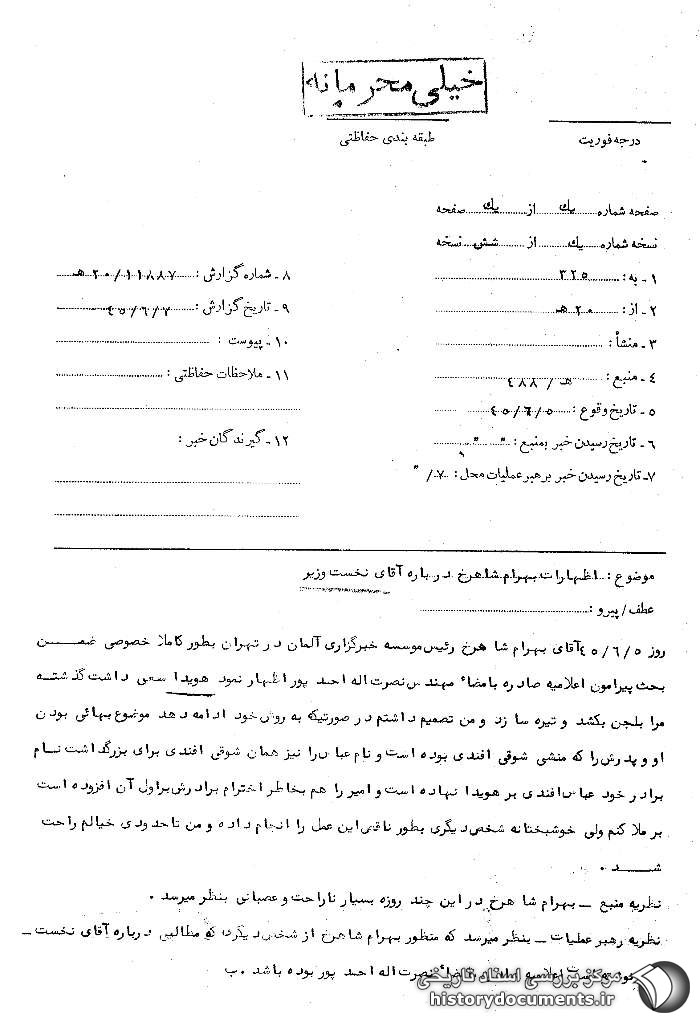 خیلی محرمانه
طبقه بندی حفاظتی
درجه فوریت
صفحه شماره یك از یك صفحه
نسخه شماره یك از شش نسخه
۱ـ به: ۳۲۵
۲ـ از: ۲۰ هـ
۳ـ منشأ:
۴ـ منبع: هـ / ۴۸۸
۵ـ تاریخ وقوع: ۴۵/۶/۵
۶ـ تاریخ رسیدن خبر بمنبع: " "
۷ـ تاریخ رسیدن خبر برهبر عملیات محل: ۷/ "
۸ـ شماره گزارش: ۲۰/۱۱۸۸۷ هـ
۹ـ تاریخ گزارش: ۴۵/۶/۷
۱۰ـ پیوست:
۱۱ـ ملاحظات حفاظتی:
۱۲ـ گیرندگان خبر:
موضوع: اظهارات بهرام شاهرخ درباره آقای نخست وزیر
عطف/پیرو:
روز ۴۵/۶/۵ آقای بهرام شا هرخ رئیس موسسه خبرگزاری آلمان در تهران بطور کاملا خصوصی ضمــن
بحث پیرامون اعلامیه صادره بامضاء مهندس نصرت اله احمد پور اظهار نمود هویدا سعی داشت گذشتــه
مرا بلجن بکشد و تیره سازد و من تصمیم داشتم در صورتیکه به روش خود ادامه دهد موضوع بهائی بودن
او و پدرش را که منشی شوقی افندی بوده است و نام عباس را نیز همان شوقی افندی برای بزرگداشت نــام
برادر خود عباس افندی بر هویدا نهاده است و امیر را هم بخاطر احترام برادرش بر اول آن افزوده است
بر ملا کنم ولی خوشبختانه شخص دیگری بطور ناقص این عمل را انجام داده و من تاحدودی خیالم راحت
شــد .
نظریه منبع ـ بهرام شا هرخ در این چند روزه بسیار ناراحت و عصبانی بنظر میرسد .
نظریه رهبر عملیات ـ بنظر میرسد که منظور بهرام شاهرخ از شخص دیگری که مطالبی درباره آقای نخست ـ
نصرت اله احمد پور بوده باشد . ب
مرکز بررسی اسناد تاریخی
historydocuments.ir